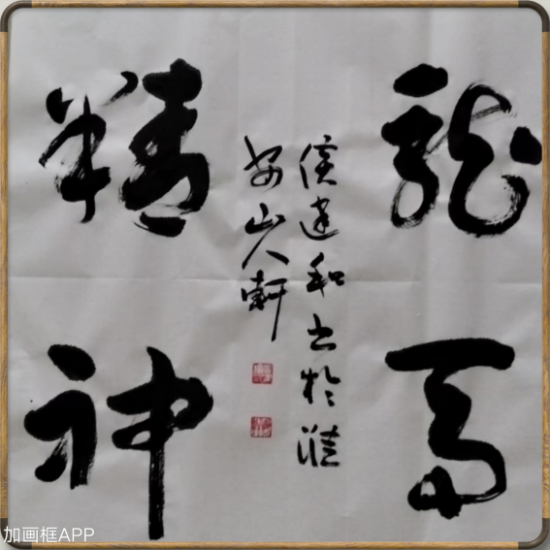 龍馬
侯建和书於
山人軒
精神
加画框APP